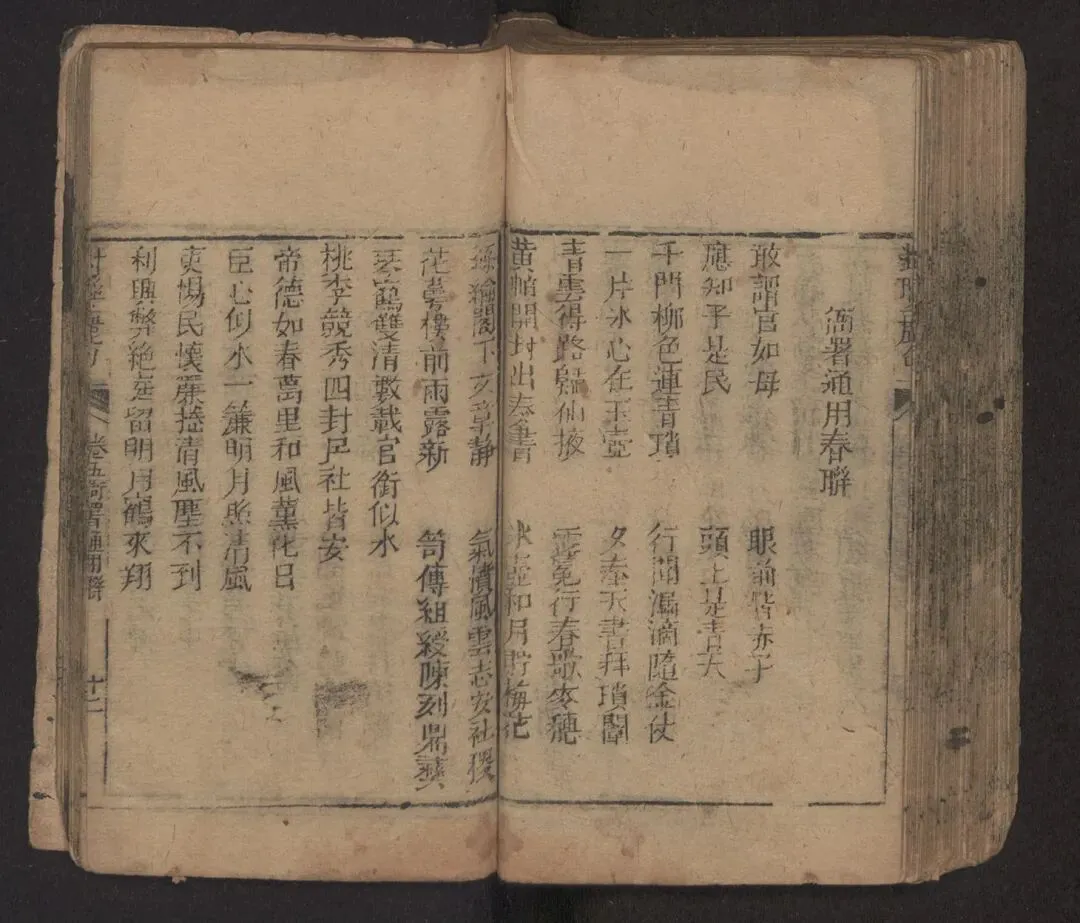 衙署通用春聯
敢謂官如母 眼前皆赤子
應知子是民 頭上是青天
千門柳色連青瑣 行間漏滴隨金仗
一片冰心在玉壺 夕奉天書拜瑣闈
青雲得路歸仙掖 行春歌麥穗
黃開封出奏書 冰壺和月貯梅花
絲綸閣下文章靜 氣憤風雲志安社稷
花萼樓前雨露新 笥傳組綬陳刻鼎彝
琴鶴雙清數載官銜似水
桃李競秀四封民社皆安
帝德如春萬里和風薰化日
臣心似水一簾明月照清風
吏惕民懷簾捲清風塵不到
利興弊絕庭留明月鶴來翔
卷五衙署通用聯 十二